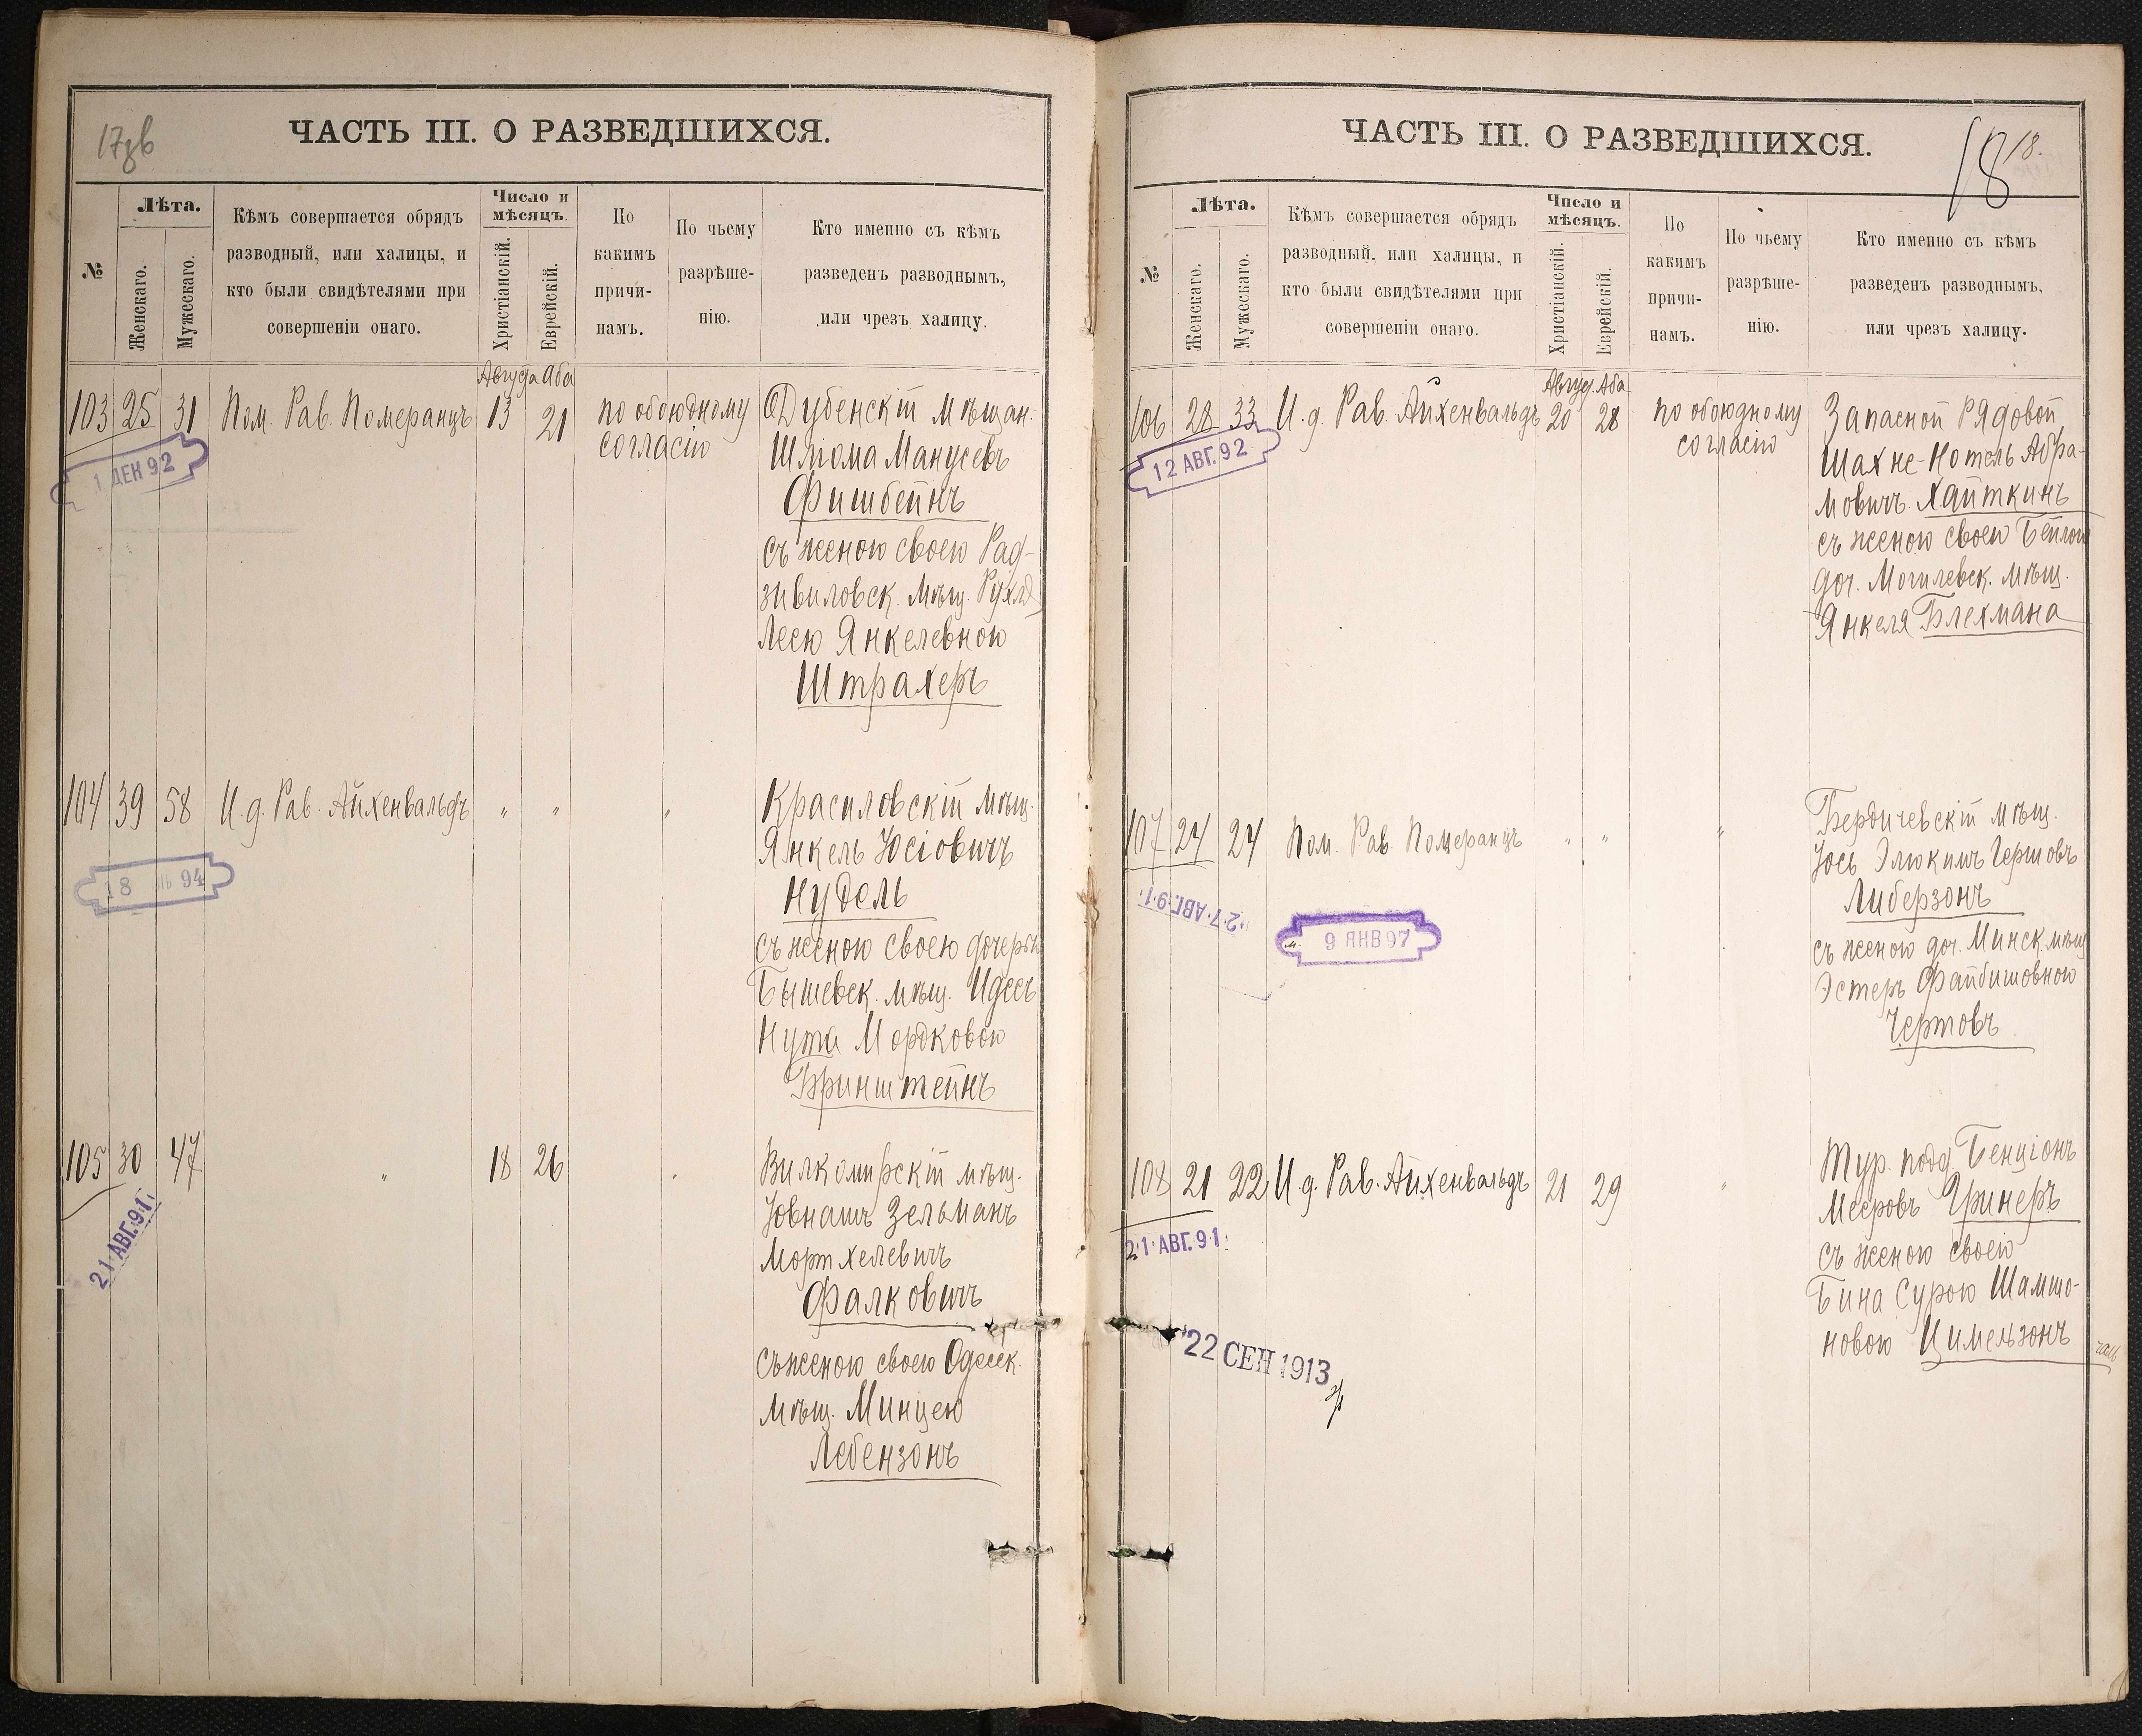 17об
ЧАСТЬ III. О РАЗВЕДШИХСЯ.
№
Лѣта.
Женскаго.
Мужескаго.
Кѣмъ совершается обрядъ
разводный, или халицы, и
кто были свидѣтелями при
совершеніи онаго.
Число и
мѣсяцъ.
Христіанскій.
Еврейскій.
По
какимъ
причи-
намъ.
По чьему
разрѣше-
нію.
Кто именно съ кѣмъ
разведенъ разводнымъ,
или чрезъ халицу.
Августа Аба
103 25 31 Пом. Рав. Померанцъ 13 21 по обоюдному
согласію
Дубенскій мѣщан.
Шлiома Манусевъ
Фишбейнъ
съ женою своею Рад-
зивиловск. мѣщ. Рухля
Лесею Янкелевною
Штрахеръ
1 ДЕК 92
104 39 58 И. д. Рав. Айхенвальдъ " " "
Красиловскій мѣщ.
Янкель Юсіовичъ
Нудель
съ женою своею дочерью
Бышевск. мѣщ. Идесъ
Нута Мордковою
Бринштейнъ
18 94
105 30 47 " 18 26 "
Вилкомирскій мѣщ.
Іовнашъ Зельманъ
Мортхелевичъ
Фалковичъ
съ женою своею Одесск.
мѣщ. Минцею
Лебензонъ
21 АВГ. 91
ЧАСТЬ III. О РАЗВЕДШИХСЯ.
18 18.
№
Лѣта.
Женскаго.
Мужескаго.
Кѣмъ совершается обрядъ
разводный, или халицы, и
кто были свидѣтелями при
совершеніи онаго.
Число и
мѣсяцъ.
Христіанскій.
Еврейскій.
По
какимъ
причи-
намъ.
По чьему
разрѣше-
нію.
Кто именно съ кѣмъ
разведенъ разводнымъ,
или чрезъ халицу.
Август. Аба
106 28 33 И. д. Рав. Айхенвальдъ 20 28 по обоюдному
согласію
Запасной Рядовой
Шахне-Нотель Абра-
мовичъ Хайткинъ
съ женою своею Бейлою
доч. Могилевск. мѣщ.
Янкеля Блехмана
12 АВГ. 92
107 24 24 Пом. Рав. Померанцъ " " "
Бердичевскій мѣщ.
Іось Элюкимъ Гершовъ
Либерзонъ
съ женою доч. Минск. мѣщ.
Эстеръ Файбишовною
Чертовъ
27 АВГ. 91
9 ЯНВ 97
108 21 22 И. д. Рав. Айхенвальдъ 21 29 "
Тур. подд. Бенціонъ
Мееровъ Гринеръ
съ женою своею
Бина Сурою Шамшо-
новою Цимельзонъ
21 АВГ. 91
22 СЕН 1913